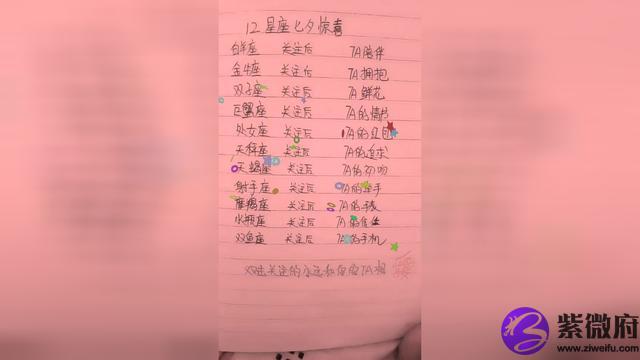 12星座七夕惊喜
白羊座 关注后 TA陪伴
金牛座 关注后 TA拥抱
双子座 关注后 TA鲜花
巨蟹座 关注后 TA的情书
处女座 关注后 TA的红包
天秤座 关注后 TA的追求
天蝎座 关注后 TA的初吻
射手座 关注后 TA的牵手
摩羯座 关注后 TA的
水瓶座 关注后 TA的
双鱼座 关注后 TA的手机
双击关注的永远和
紫微府
www.ziweifu.com